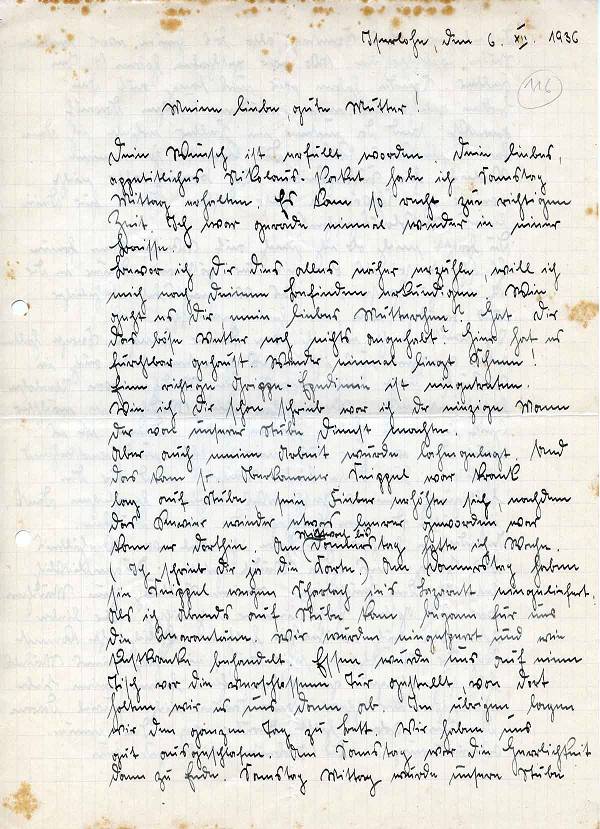 Iserlohn, den 6. XII. 1936
116
Meine liebe, gute Mutter!
Dein Wunsch ist erfüllt worden. Dein liebes,
appetitliches Nikolaus-Paket habe ich Samstag
Mittag erhalten. Es kam so recht zur richtigen
Zeit. Ich war gerade einmal wieder in einer
Krise.
Bevor ich Dir dies alles näher erzähle, will ich
mich nach Deinem Befinden erkundigen. Wie
geht es Dir mein liebes Mütterchen? Hat Dir
das böse Wetter noch nichts angehabt? Hier hat es
furchtbar gehaust. Wieder einmal liegt Schnee!
Eine richtige Grippe-Epedimie ist eingetreten.
Wie ich Dir schon schrieb war ich der einzige Mann
der von unserer Stube Dienst machte.
Aber auch meine Arbeit wurde lahmgelegt. Und
das kam so. Oberkanonier war krank
lag auf Stube sein Fieber erhöhte sich, nachdem
das Revier wieder etwas leerer geworden war
kam er dorthin. Am (Mittwoch bis Donnerstag hatte ich Wache.
(Ich schrieb Dir ja die Karte.) Am Donnerstag haben
sie wegen Scharlach in's Lazarett eingeliefert.
Als ich Abends auf Stube kam begann für uns
die Quarantäne. Wir wurden eingesperrt und wie
Pestkranke behandelt. Essen wurde uns auf einen
Tisch vor die verschlossene Tür gestellt, von dort
holten wir es uns dann ab. Im übrigen lagen
wir den ganzen Tag zu Bett. Wir haben uns
gut ausgeschlafen. Am Samstag war die Herrlichkeit
dann zu Ende. Samstag Mittag wurde unsere Stube